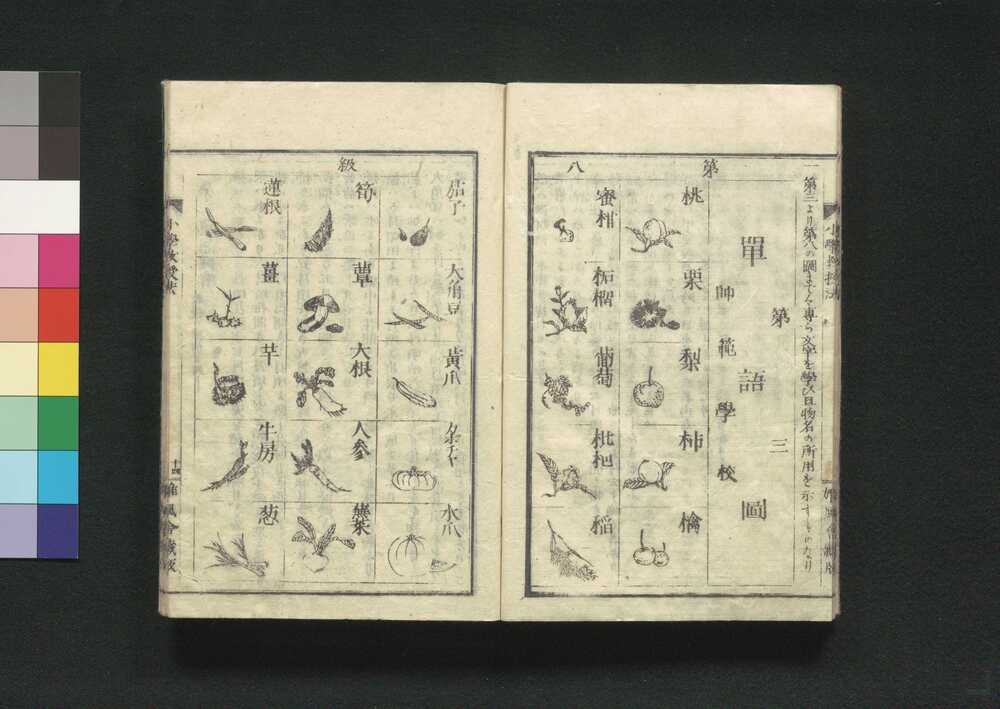 一 第三より第八の圖まては專ら文字を學ひ且物名の所用を示すものなり
第三
單語圖
師範學校
第八
桃
栗
梨
柿
檎
蜜柑
柘榴
葡萄
枇杷
稲
級
茄子
大角豆
黃爪
水爪
筍
蕈
大根
人参
蕪菜
蓮根
薑
芋
牛房
葱
小學教授法
十四